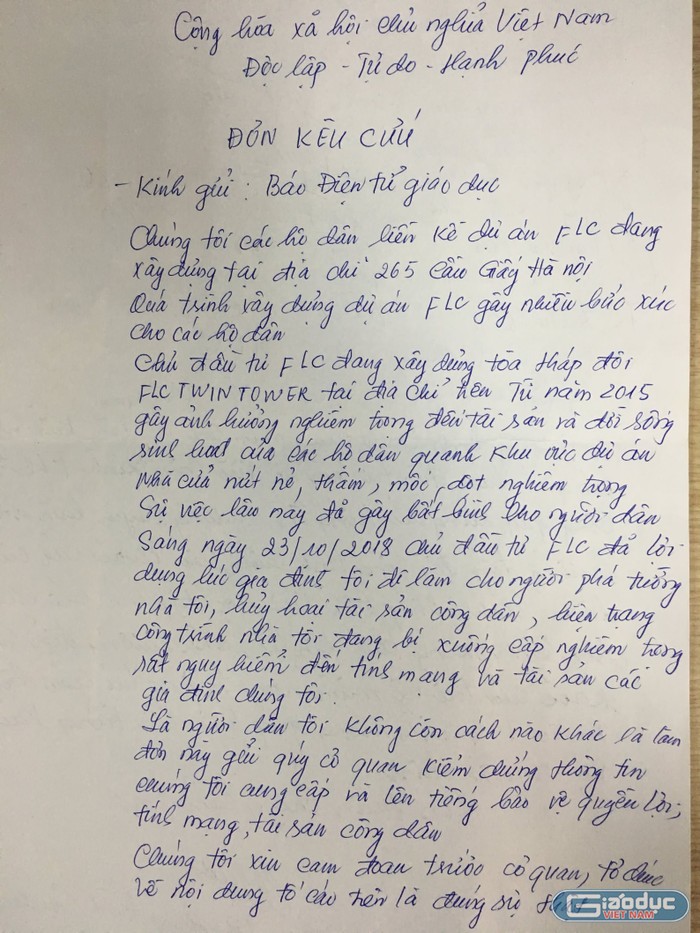 Cộng hòa xã hội chủ nghĩa Việt Nam
Độc lập - Tự do - Hạnh phúc
ĐƠN KÊU CỨU
- Kính gửi : Báo Điện tử giáo dục
Chúng tôi các hộ dân liền kề dự án FLC đang
xây dựng tại địa chỉ 265 Cầu Giấy Hà nội
Quá trình xây dựng dự án FLC gây nhiều bức xúc
cho các hộ dân
Chủ đầu tư FLC đang xây dựng tòa tháp đôi
FLC TWIN TOWER tại địa chỉ trên Từ năm 2015
gây ảnh hưởng nghiêm trọng đến tài sản và đời sống
sinh hoạt của các hộ dân quanh khu vực dự án
Nhà cửa nứt nẻ, thấm, mốc, dột nghiêm trọng
Sự việc lâu nay đã gây bất bình cho người dân
Sáng ngày 23/10/2018 chủ đầu tư FLC đã lợi
dụng lúc gia đình tôi đi làm cho người phá tường
nhà tôi, hủy hoại tài sản công dân, hiện trạng
công trình nhà tôi đang bị xuống cấp nghiêm trọng
rất nguy hiểm đến tính mạng và tài sản các
gia đình chúng tôi.
Là người dân tôi không còn cách nào khác là làm
đơn này gửi quý cơ quan kiểm chứng thông tin
chúng tôi cung cấp và lên tiếng bảo vệ quyền lợi,
tính mạng, tài sản công dân
Chúng tôi xin cam đoan trước cơ quan, tổ chức
về nội dung tố cáo trên là đúng sự thật
Giáodục
VIỆT NAM